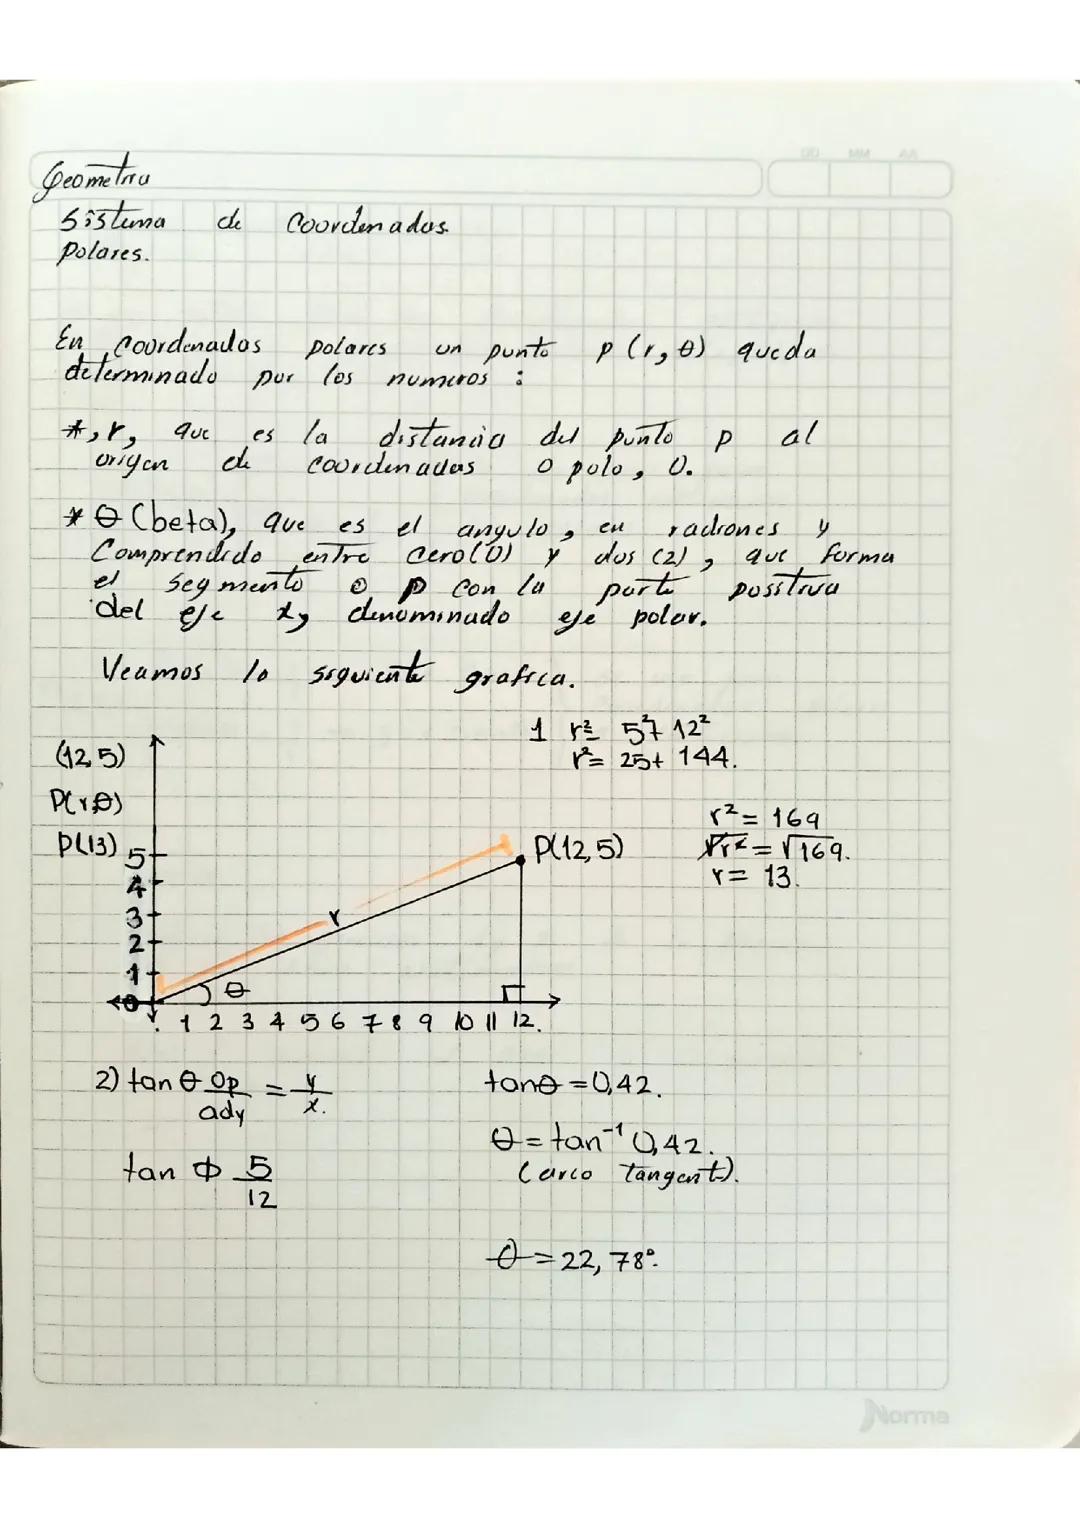 Geometria
Sistema de Coordenadas
Polares.
En coordenadas polares un punto P (r, θ) queda
determinado por los numeros :
*, r, que es la distancia del punto p al
origen de coordenadas o polo, O.
* θ (beta), que es el angulo, en radiones y
Comprendido entre cero(0) y dos (2), que forma
el segmento o p con la parte positiva
del eje x, denominado eje polar.
Veamos la siguiente grafica.
1 r² = 5² + 12²
r² = 25 + 144.
(12,5)
P(r θ)
P(13)
r² = 169
√r² = √169.
r = 13.
P(12,5)
5
4
3
2
1
0
r
θ
1 2 3 4 5 6 7 8 9 10 11 12.
2) tan θ op/ady = y/x.
tan Φ 5/12
tanθ = 0,42.
θ = tan⁻¹ 0,42.
(arco tangent).
θ = 22,78°.
Norma